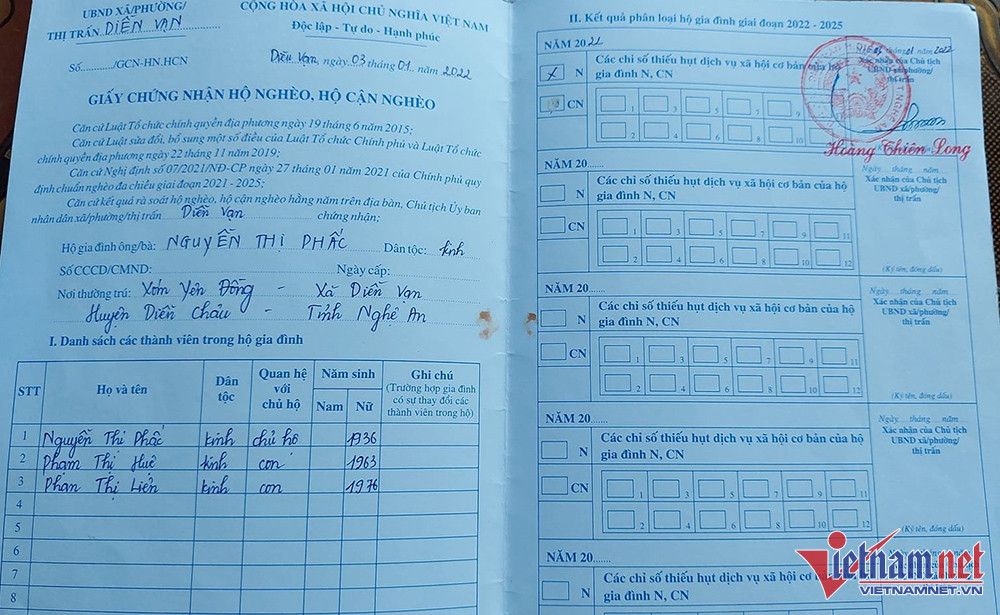 UBND XÃ/PHƯỜNG/
THỊ TRẤN DIỄN VẠN
CỘNG HÒA XÃ HỘI CHỦ NGHĨA VIỆT NAM
Độc lập - Tự do - Hạnh phúc
Số............/GCN-HN.HCN
Diễn Vạn, ngày 03 tháng 01 năm 2022
GIẤY CHỨNG NHẬN HỘ NGHÈO, HỘ CẬN NGHÈO
Căn cứ Luật Tổ chức chính quyền địa phương ngày 19 tháng 6 năm 2015;
Căn cứ Luật sửa đổi, bổ sung một số điều của Luật Tổ chức Chính phủ và Luật Tổ chức
chính quyền địa phương ngày 22 tháng 11 năm 2019;
Căn cứ Nghị định số 07/2021/NĐ-CP ngày 27 tháng 01 năm 2021 của Chính phủ quy
định chuẩn nghèo đa chiều giai đoạn 2021 - 2025;
Căn cứ kết quả rà soát hộ nghèo, hộ cận nghèo hằng năm trên địa bàn, Chủ tịch Ủy ban
nhân dân xã/phường/thị trấn Diễn Vạn chứng nhận;
Hộ gia đình ông/bà: NGUYỄN THỊ PHẤC Dân tộc: kinh
Số CCCD/CMND: Ngày cấp:
Nơi thường trú: Xóm Yên Đồng - Xã Diễn Vạn
Huyện Diễn Châu - Tỉnh Nghệ An
I. Danh sách các thành viên trong hộ gia đình
STT Họ và tên Dân tộc Quan hệ với chủ hộ Năm sinh Nam Nữ Ghi chú (Trường hợp gia đình có sự thay đổi các thành viên trong hộ)
1 Nguyễn Thị Phấc kinh chủ hộ 1936
2 Phạm Thị Huê kinh con 1963
3 Phan Thị Liên kinh con 1976
4
5
6
7
8
II. Kết quả phân loại hộ gia đình giai đoạn 2022 - 2025
NĂM 2022
x N Các chỉ số thiếu hụt dịch vụ xã hội cơ bản của hộ
gia đình N, CN
CN
1 3 5 7 9
2 4 6 8 10
tháng 01 năm 2022
Xác nhận của Chủ tịch
UBND xã/phường/
thị trấn
Hoàng Thiên Long
NĂM 20......
N Các chỉ số thiếu hụt dịch vụ xã hội cơ bản của hộ
gia đình N, CN
CN
1 3 5 7 9 11
2 4 6 8 10 12
Ngày tháng năm
Xác nhận của Chủ tịch
UBND xã/phường/
thị trấn
(Ký tên, đóng dấu)
NĂM 20......
N Các chỉ số thiếu hụt dịch vụ xã hội cơ bản của hộ
gia đình N, CN
CN
1 3 5 7 9 11
2 4 6 8 10 12
Ngày tháng năm
Xác nhận của Chủ tịch
UBND xã/phường/
thị trấn
(Ký tên, đóng dấu)
NĂM 20......
N Các chỉ số thiếu hụt dịch vụ xã hội cơ bản của hộ
gia đình N, CN
CN
1 3 5 7 9 11
2 4 6 8 10 12
Ngày tháng năm
Xác nhận của Chủ tịch
UBND xã/phường/
thị trấn
(Ký tên, đóng dấu)
NĂM 20......
N Các chỉ số thiếu hụt dịch vụ xã hội cơ bản của
gia đình N, CN
Vietnamnet
VIETNAMNET.VN